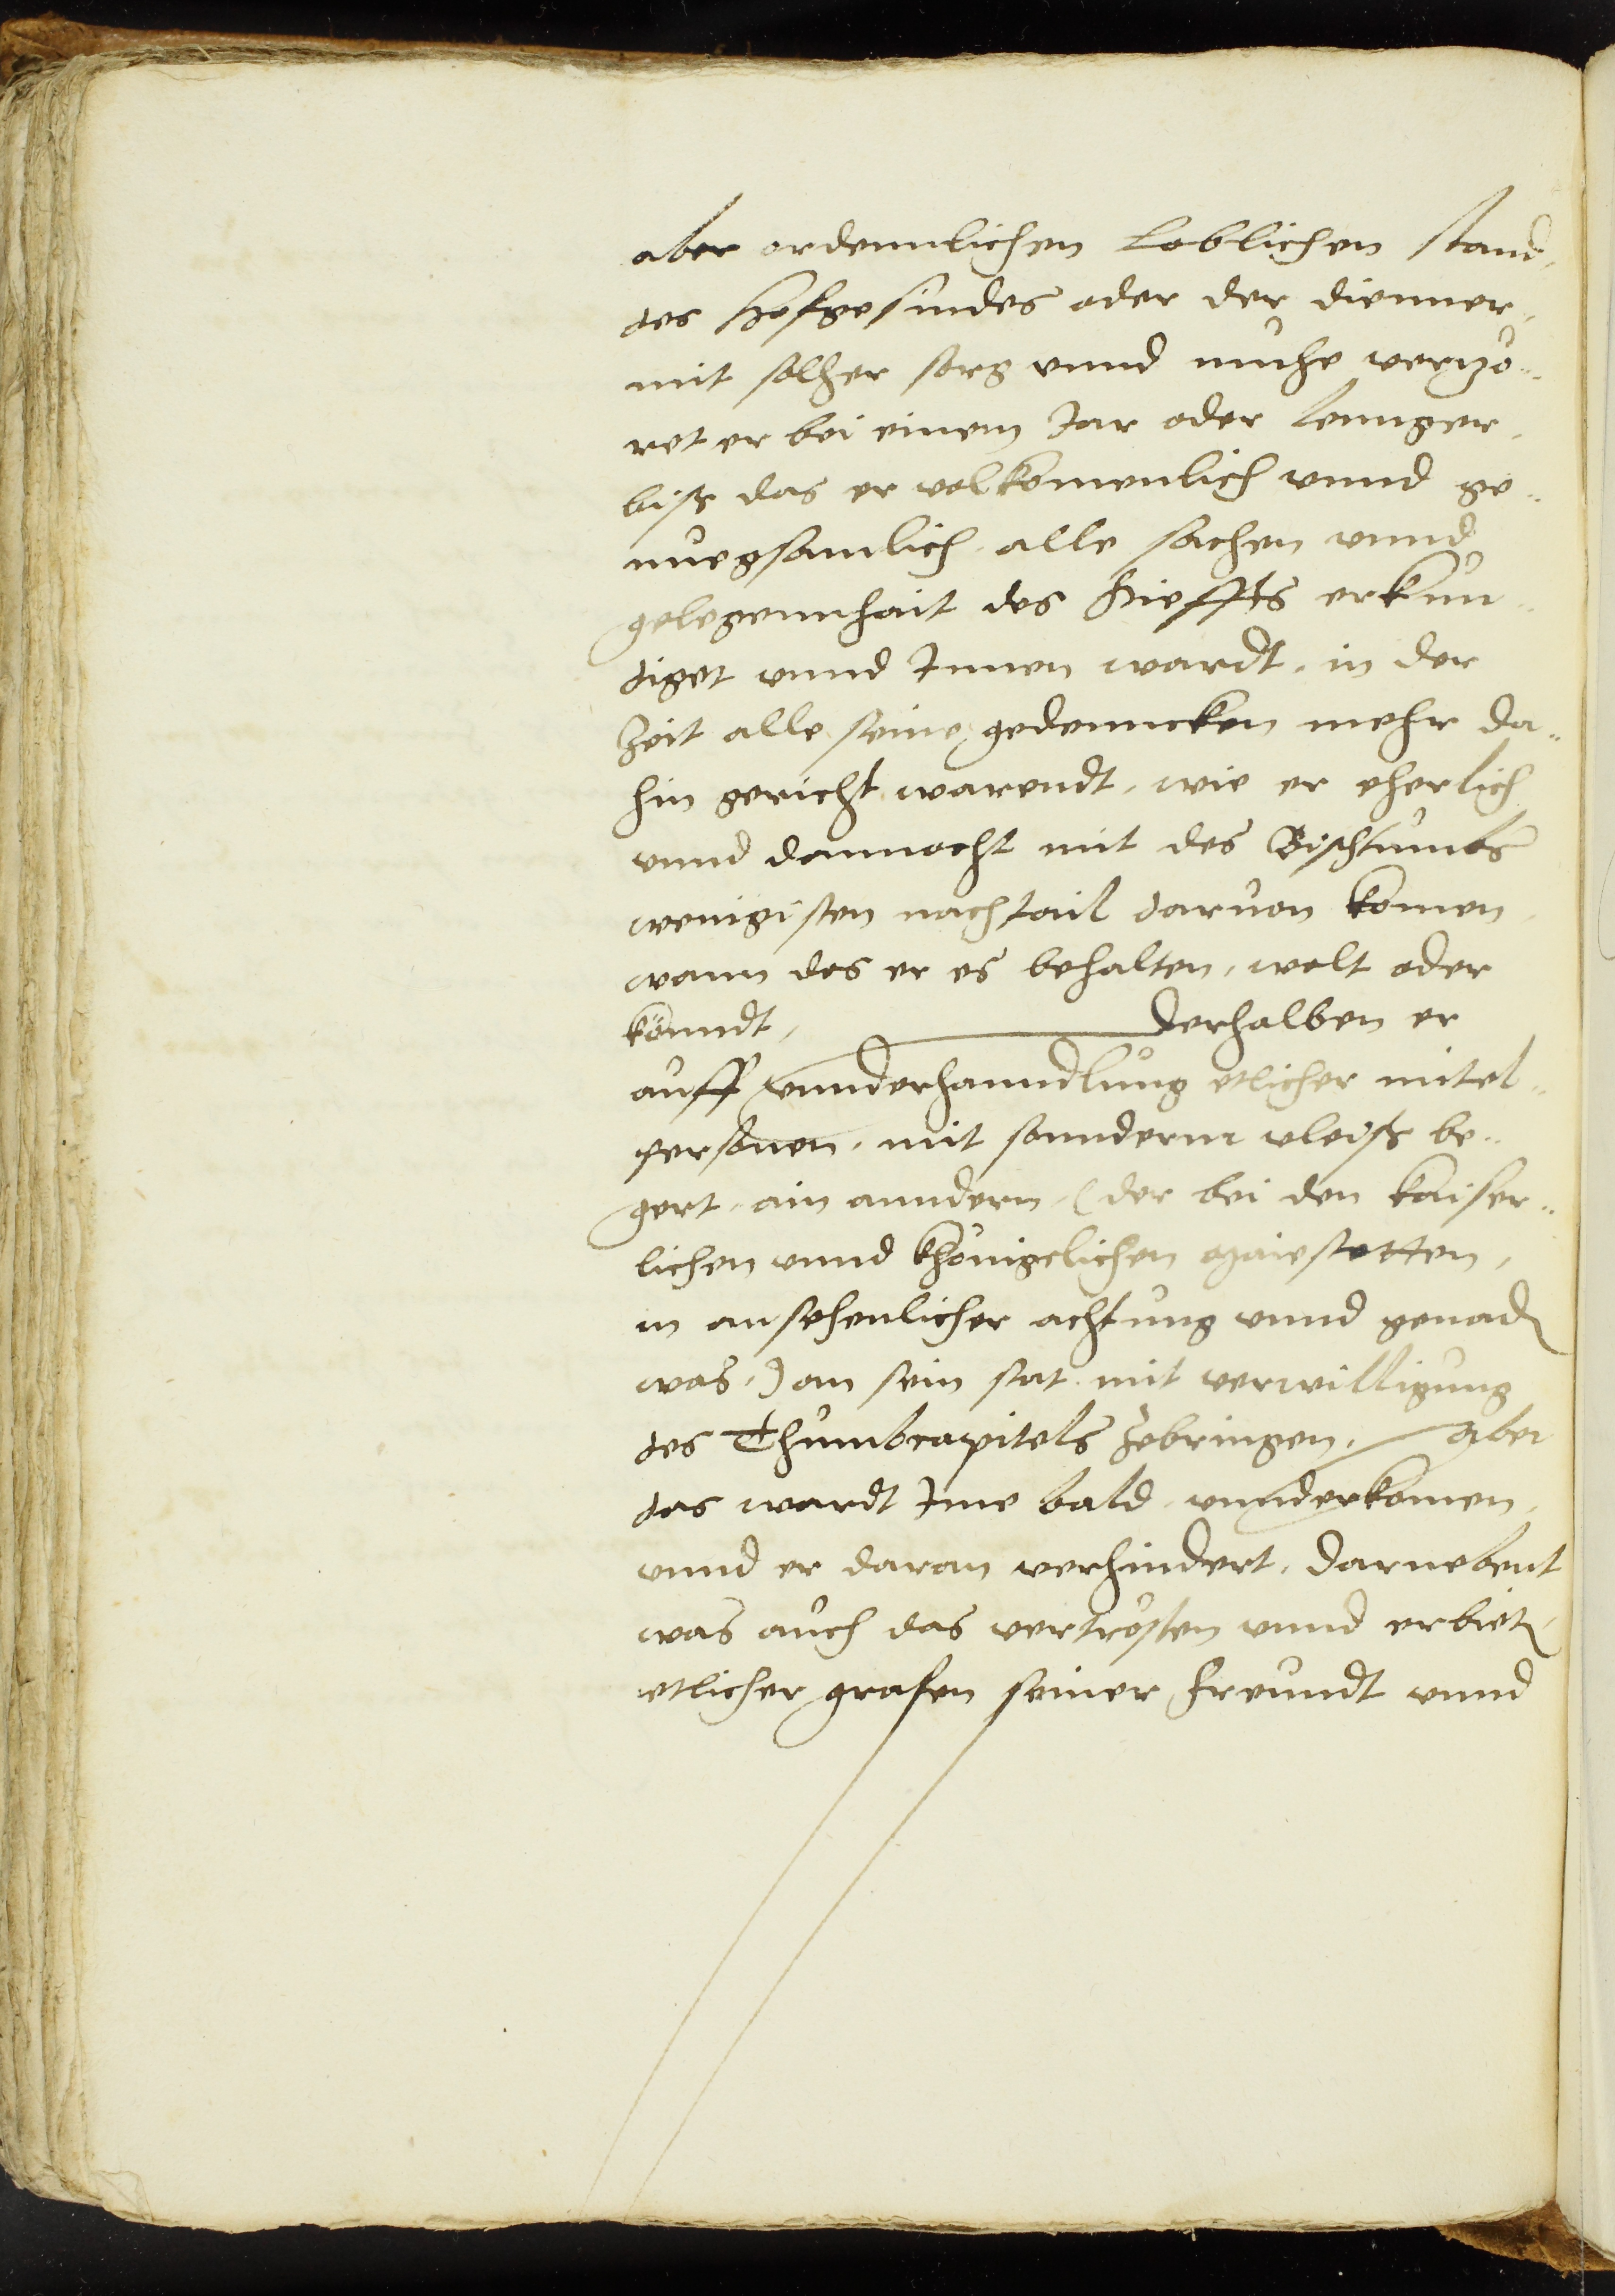 aber ordennlichen loblichen stand,
des hofgesindes oder der dienner,
mit solher sorg vnnd muhe verzö¬
ret er bei einem Jar oder lennger,
biß das er volkomenlich vnnd ge¬
nuegsamlich alle sachen vnnd
gelegennhait des stieffts erkun¬
diget vnnd Innen wardt, in der
Zeit alle seine gedenncken mehr da¬
hin gericht warendt, wie er eherlich
vnnd dannocht mit des Bischtumbs
wenigisten nachtail daruon komen,
wann das er es behalten, wolt oder
könndt, Derhalben er
auff vnnderhanndlung etlicher mitel¬
personen, mit sonnderm vleiß be¬
gert, ain anndern, (der bei den kaiser¬
lichen vnnd khönigclichen maiestetten,
in ansehenlicher achtung vnnd genad
was,) an sein stat mit verwilligung
des Thumbcapitels Zebringen, Aber
das wardt Ime bald vnnderkomen,
vnnd er daran verhindert, Darnebent
was auch das vertrösten vnnd erbieten
etlicher grafen seiner freundt vnnd